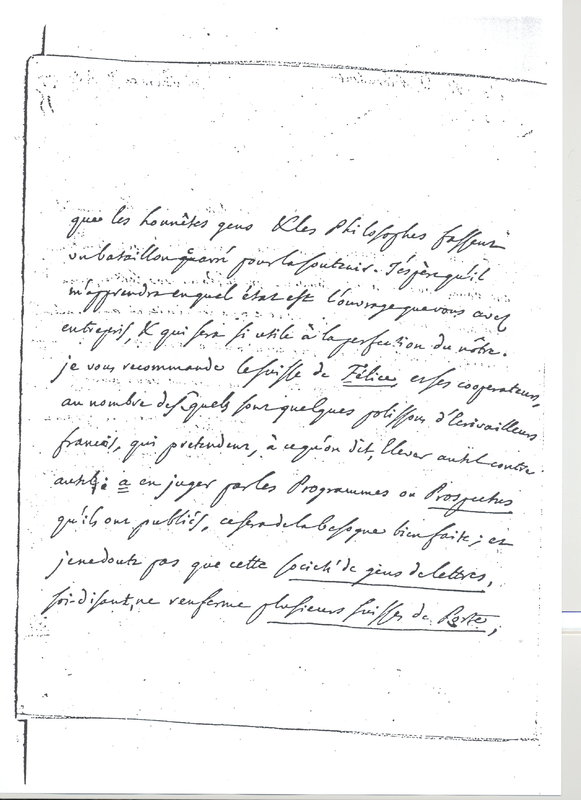 que les honnêtes gens & les Philosophes fassent
un bataillon quarré pour la soutenir. J'espère qu'il
m'apprendra en quel état est l'ouvrage que vous avez
entrepris, & qui sera si utile à la perfection du nôtre.
je vous recommande le suisse de Félice, et ses cooperateurs,
au nombre desquels sont quelques polissons d'Ecrivailleurs
francais, qui pretendent, à ce qu'on dit, Elever autel contre
autel; à en juger par les Programmes ou Prospectus
qu'ils ont publiés, ce sera de la besogne bien faite; et
je ne doute pas que cette société de gens de lettres,
soi-disant, ne renferme plusieurs suisses de Porte,